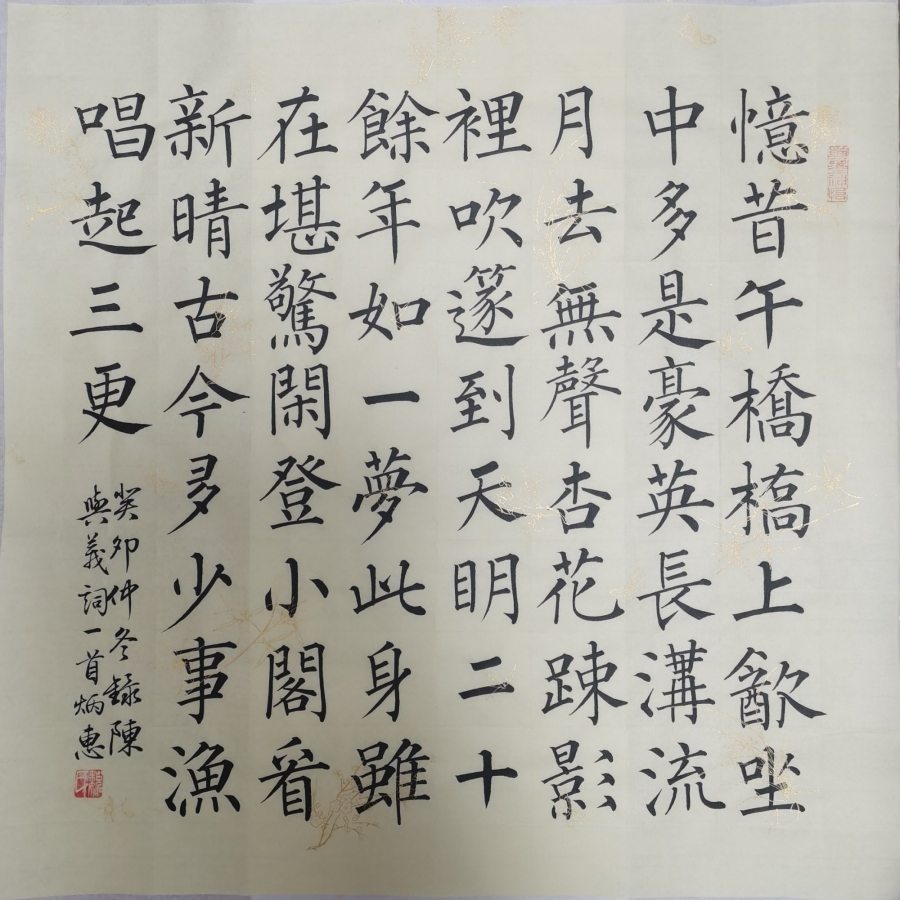 憶昔午橋橋上㱃坐
中多是豪英長溝流
月去無聲杏花踈影
裡吹篴到天眀二十
餘年如一夢此身雖
在堪驚閑登小閣看
新晴古今多少事漁
唱起三更
癸卯仲冬録陳
與義詞一首炳惠